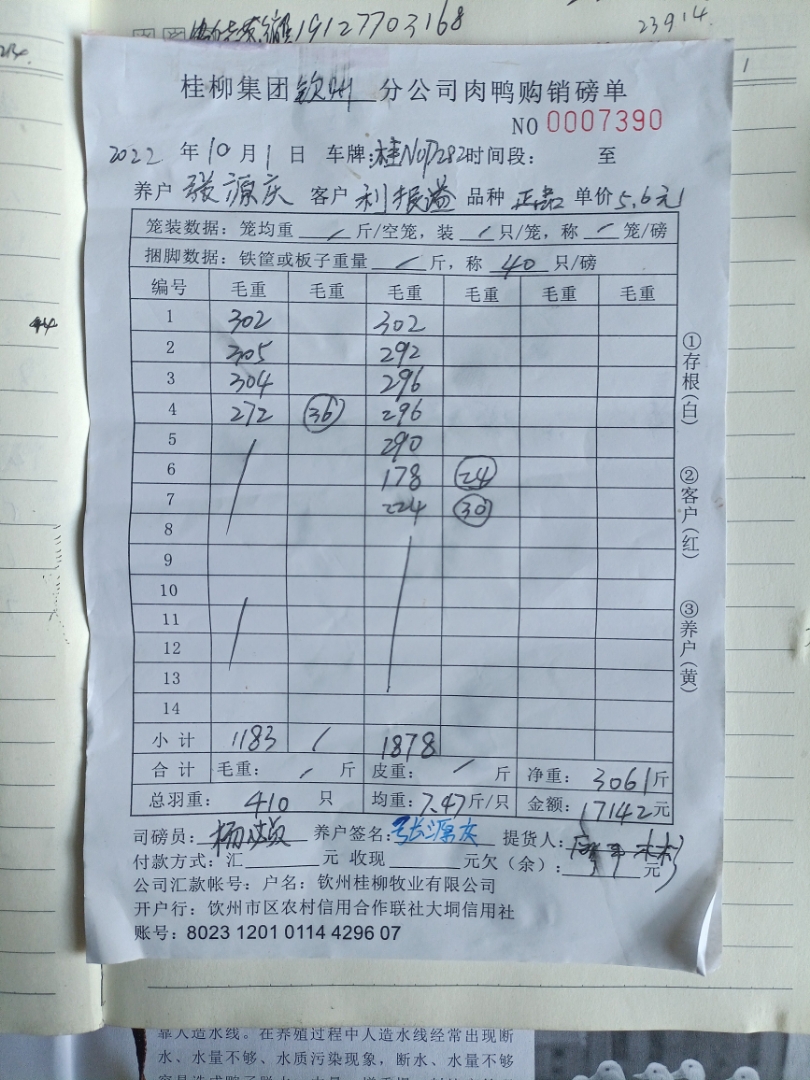 19127703168
23914.
桂柳集团 钦州 分公司肉鸭购销磅单
NO 0007390
2022 年 10 月 1 日 车牌: 时间段: 至
养户 张源庆 客户 利振溢 品种 正品 单价 5.6元
笼装数据: 笼均重 / 斤/空笼, 装 / 只/笼, 称 / 笼/磅
捆脚数据: 铁筐或板子重量 / 斤, 称 40 只/磅
编号 毛重 毛重 毛重 毛重 毛重 毛重
1 302 302
2 305 292
3 304 296
4 272 36 296
5 290
6 178 24
7 224 30
8
9
10
11
12
13
14
小计 1183 / 1878
合计 毛重: / 斤 皮重: / 斤 净重: 3061斤
总羽重: 410 只 均重: 7.47斤/只 金额: 17142元
司磅员: 养户签名: 张源庆 提货人:
付款方式: 汇 元 收现 元欠(余): 元
公司汇款帐号: 户名: 钦州桂柳牧业有限公司
开户行: 钦州市区农村信用合作联社大垌信用社
账号: 8023 1201 0114 4296 07
①存根(白)
②客户(红)
③养户(黄)
靠人造水线。在养殖过程中人造水线经常出现断
水、水量不够、水质污染现象，断水、水量不够